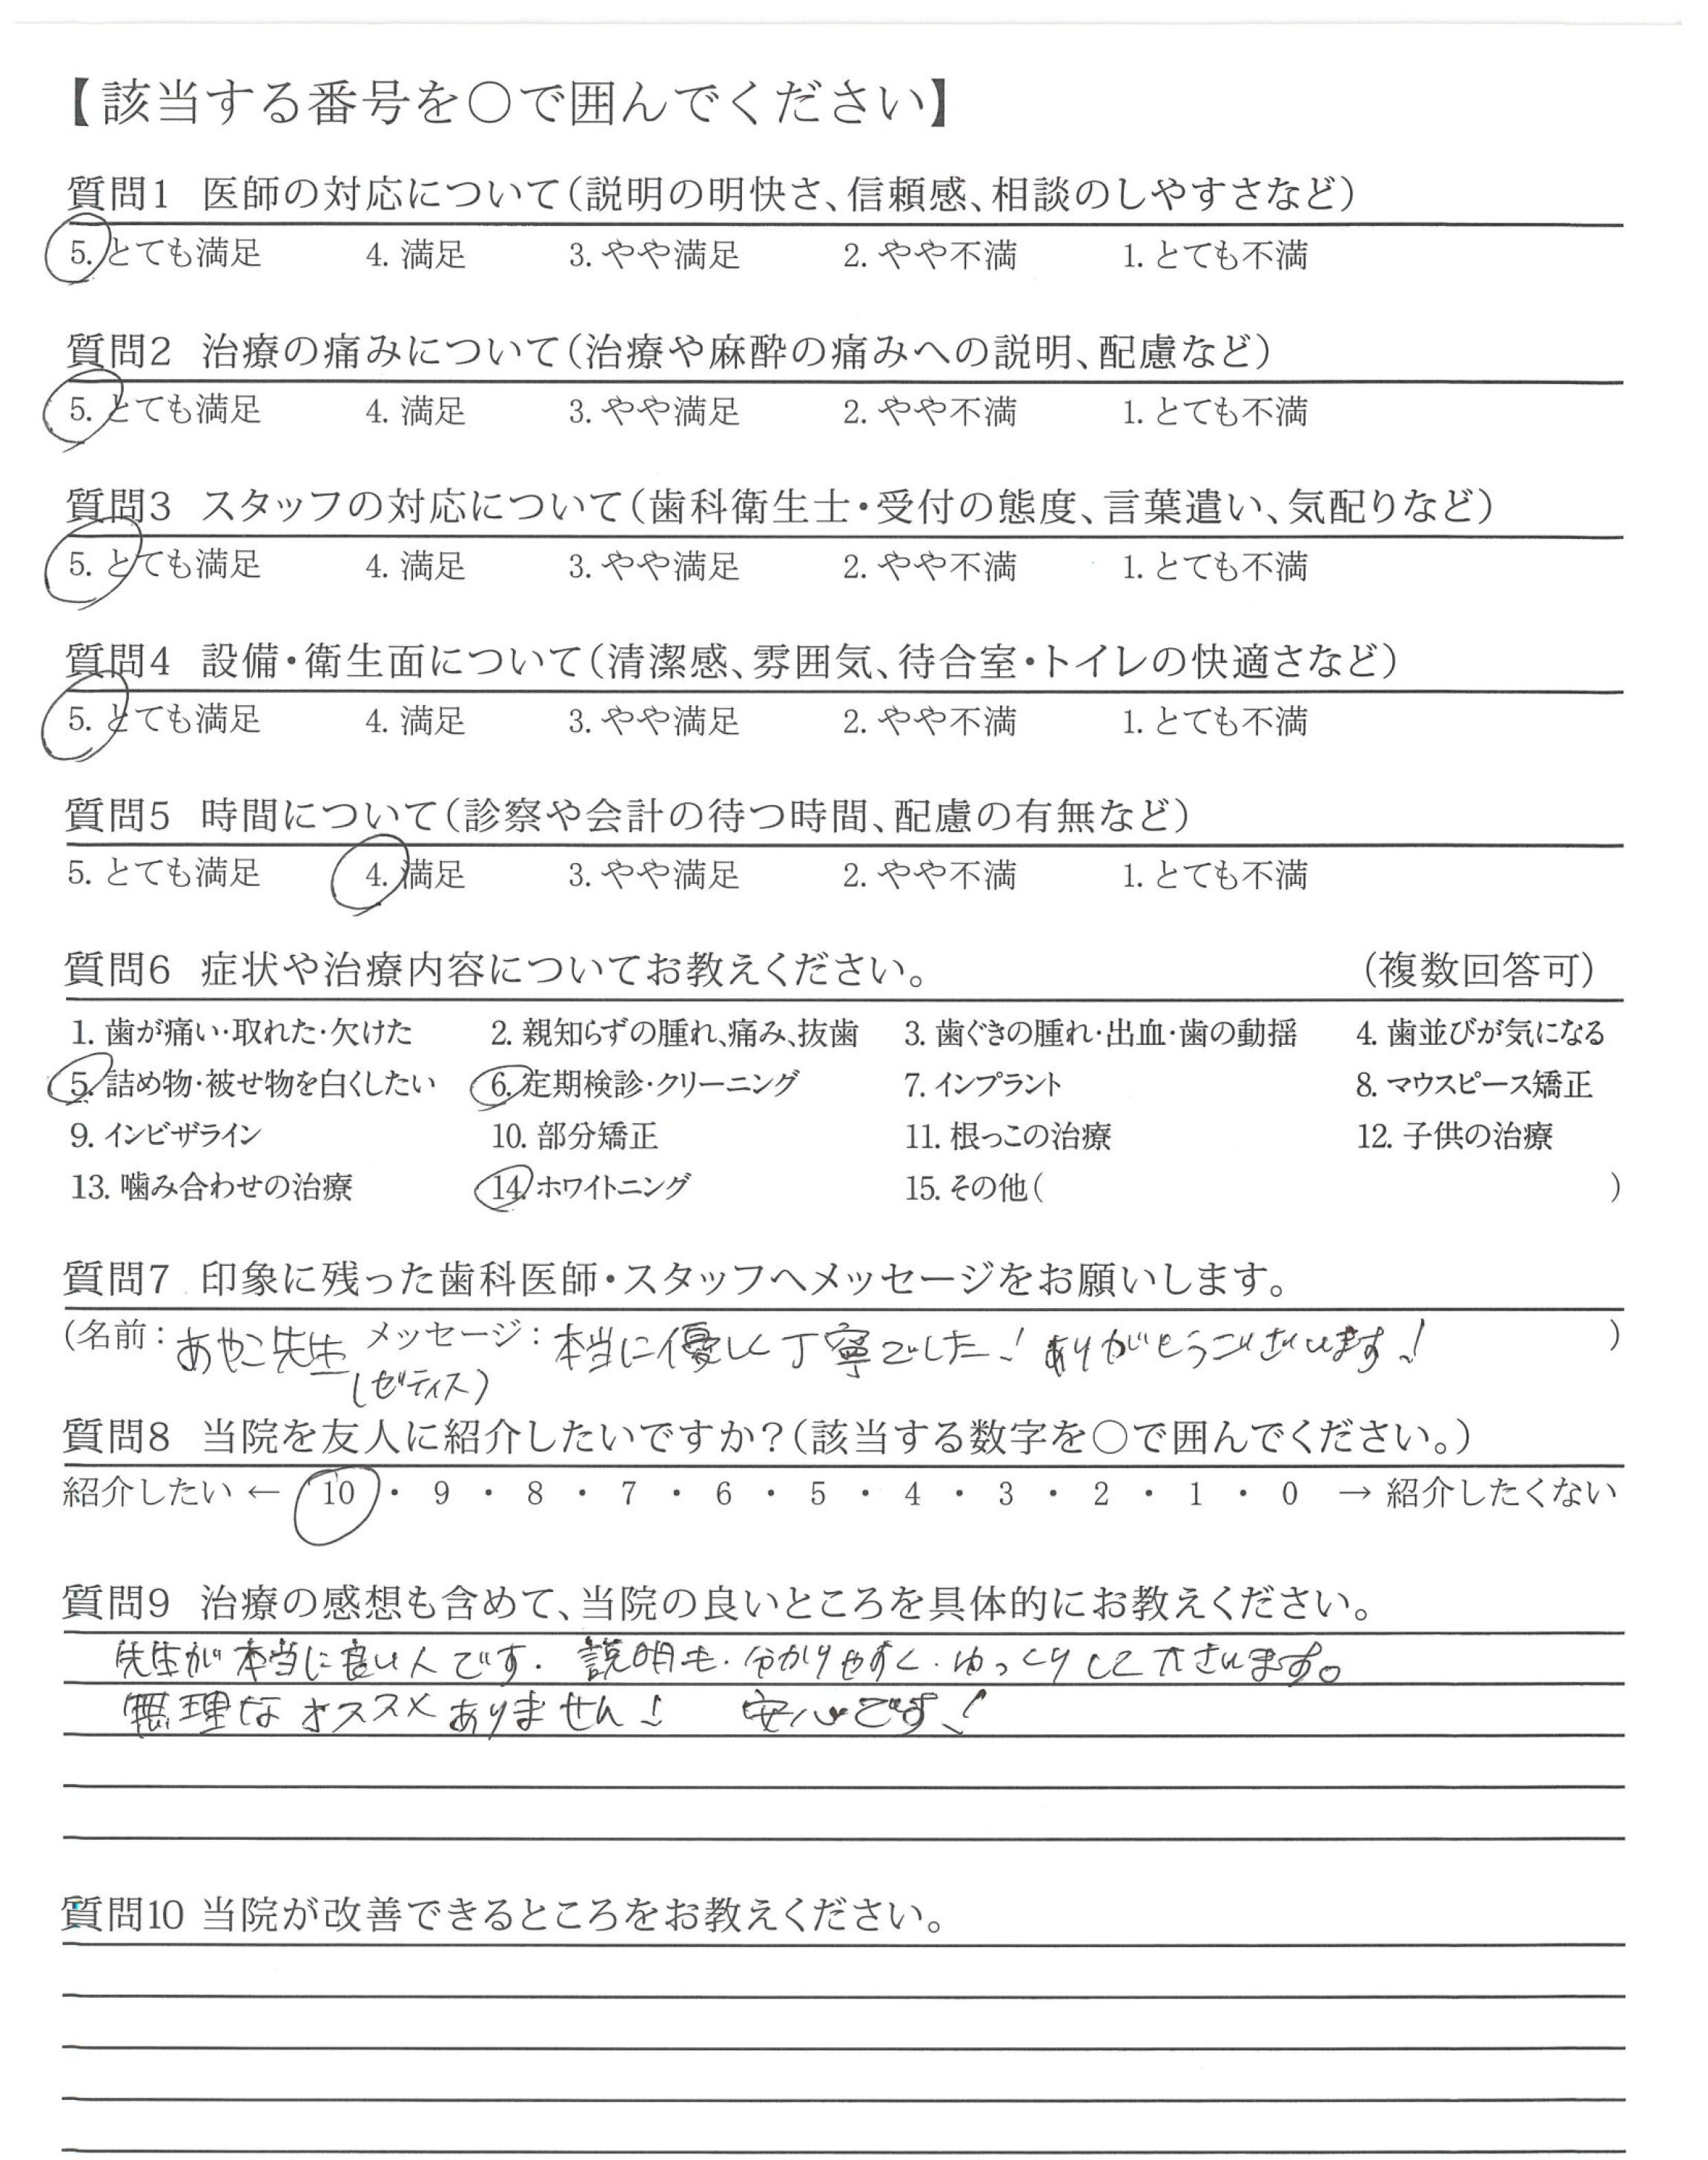 【該当する番号を○で囲んでください】
質問1 医師の対応について(説明の明快さ、信頼感、相談のしやすさなど)
5. とても満足 4. 満足 3. やや満足 2. やや不満 1. とても不満
質問2 治療の痛みについて(治療や麻酔の痛みへの説明、配慮など)
5. とても満足 4. 満足 3. やや満足 2. やや不満 1. とても不満
質問3 スタッフの対応について(歯科衛生士・受付の態度、言葉遣い、気配りなど)
5. とても満足 4. 満足 3. やや満足 2. やや不満 1. とても不満
質問4 設備・衛生面について(清潔感、雰囲気、待合室・トイレの快適さなど)
5. とても満足 4. 満足 3. やや満足 2. やや不満 1. とても不満
質問5 時間について(診察や会計の待つ時間、配慮の有無など)
5. とても満足 4. 満足 3. やや満足 2. やや不満 1. とても不満
質問6 症状や治療内容についてお教えください。 (複数回答可)
1. 歯が痛い・取れた・欠けた 2. 親知らずの腫れ、痛み、抜歯 3. 歯ぐきの腫れ・出血・歯の動揺 4. 歯並びが気になる
5. 詰め物・被せ物を白くしたい 6. 定期検診・クリーニング 7. インプラント 8. マウスピース矯正
9. インビザライン 10. 部分矯正 11. 根っこの治療 12. 子供の治療
13. 噛み合わせの治療 14. ホワイトニング 15. その他( )
質問7 印象に残った歯科医師・スタッフへメッセージをお願いします。
(名前：あやこ先生 メッセージ：本当に優しく丁寧でした！ありがとうございます！ )
(ゼティス)
質問8 当院を友人に紹介したいですか？(該当する数字を○で囲んでください。)
紹介したい ← 10 ・ 9 ・ 8 ・ 7 ・ 6 ・ 5 ・ 4 ・ 3 ・ 2 ・ 1 ・ 0 → 紹介したくない
質問9 治療の感想も含めて、当院の良いところを具体的にお教えください。
先生が本当に良い人です. 説明も. 分かりやすく. ゆっくりして下さいます。
無理なオススメありません！ 安心です！
質問10 当院が改善できるところをお教えください。